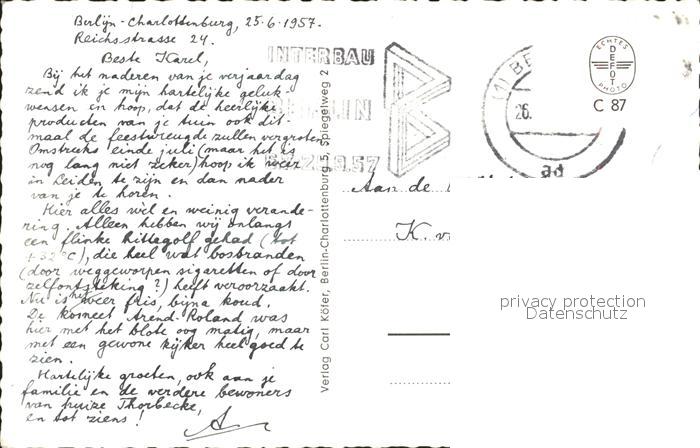 Berlijn-Charlottenburg, 25.6.1957.
Reichsstrasse 24.
Beste Karel,
Bij het naderen van je verjaardag
zend ik je mijn hartelijke geluk-
wensen in hoop, dat de heerlijke
producten van je tuin ook dit-
maal de feestvreugde zullen vergroten.
Omstreeks einde juli (maar het is
nog lang niet zeker) hoop ik weer
in Leiden te zijn en dan nader
van je te horen.
Hier alles wèl en weinig verande-
ring. Alleen hebben wij onlangs
een flinke hittegolf gehad (tot
+32°C), die heel wat bosbranden
(door weggeworpen sigaretten of door
zelfontsteking?) heeft veroorzaakt.
Nu is het weer fris, bijna koud.
De komeet Arend-Roland was
hier met het blote oog matig, maar
met een gewone kijker heel goed te
zien.
Hartelijke groeten, ook aan je
familie en de verdere bewoners
van huize Thorbecke,
en tot ziens!
INTERBAU
BERLIN
57
Verlag Carl Köfer, Berlin-Charlottenburg 5, Spiegelweg 2
(1) BE
26.
ad
ECHTES
DEFOT
PHOTO
C 87
Aan de
K. v
privacy protection
Datenschutz